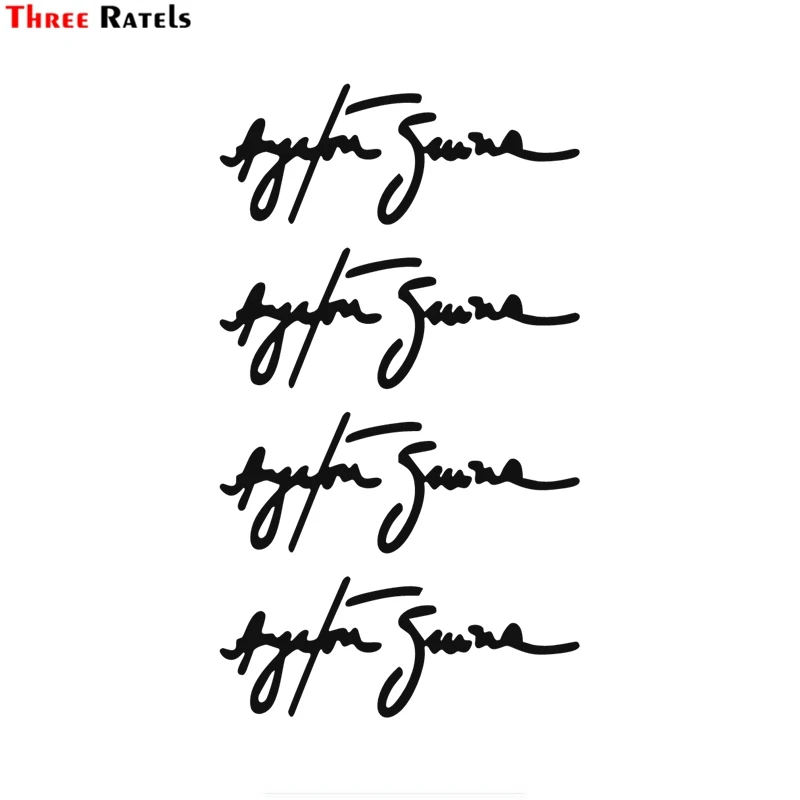 THREE RATELS
Ayrton Senna
Ayrton Senna
Ayrton Senna
Ayrton Senna